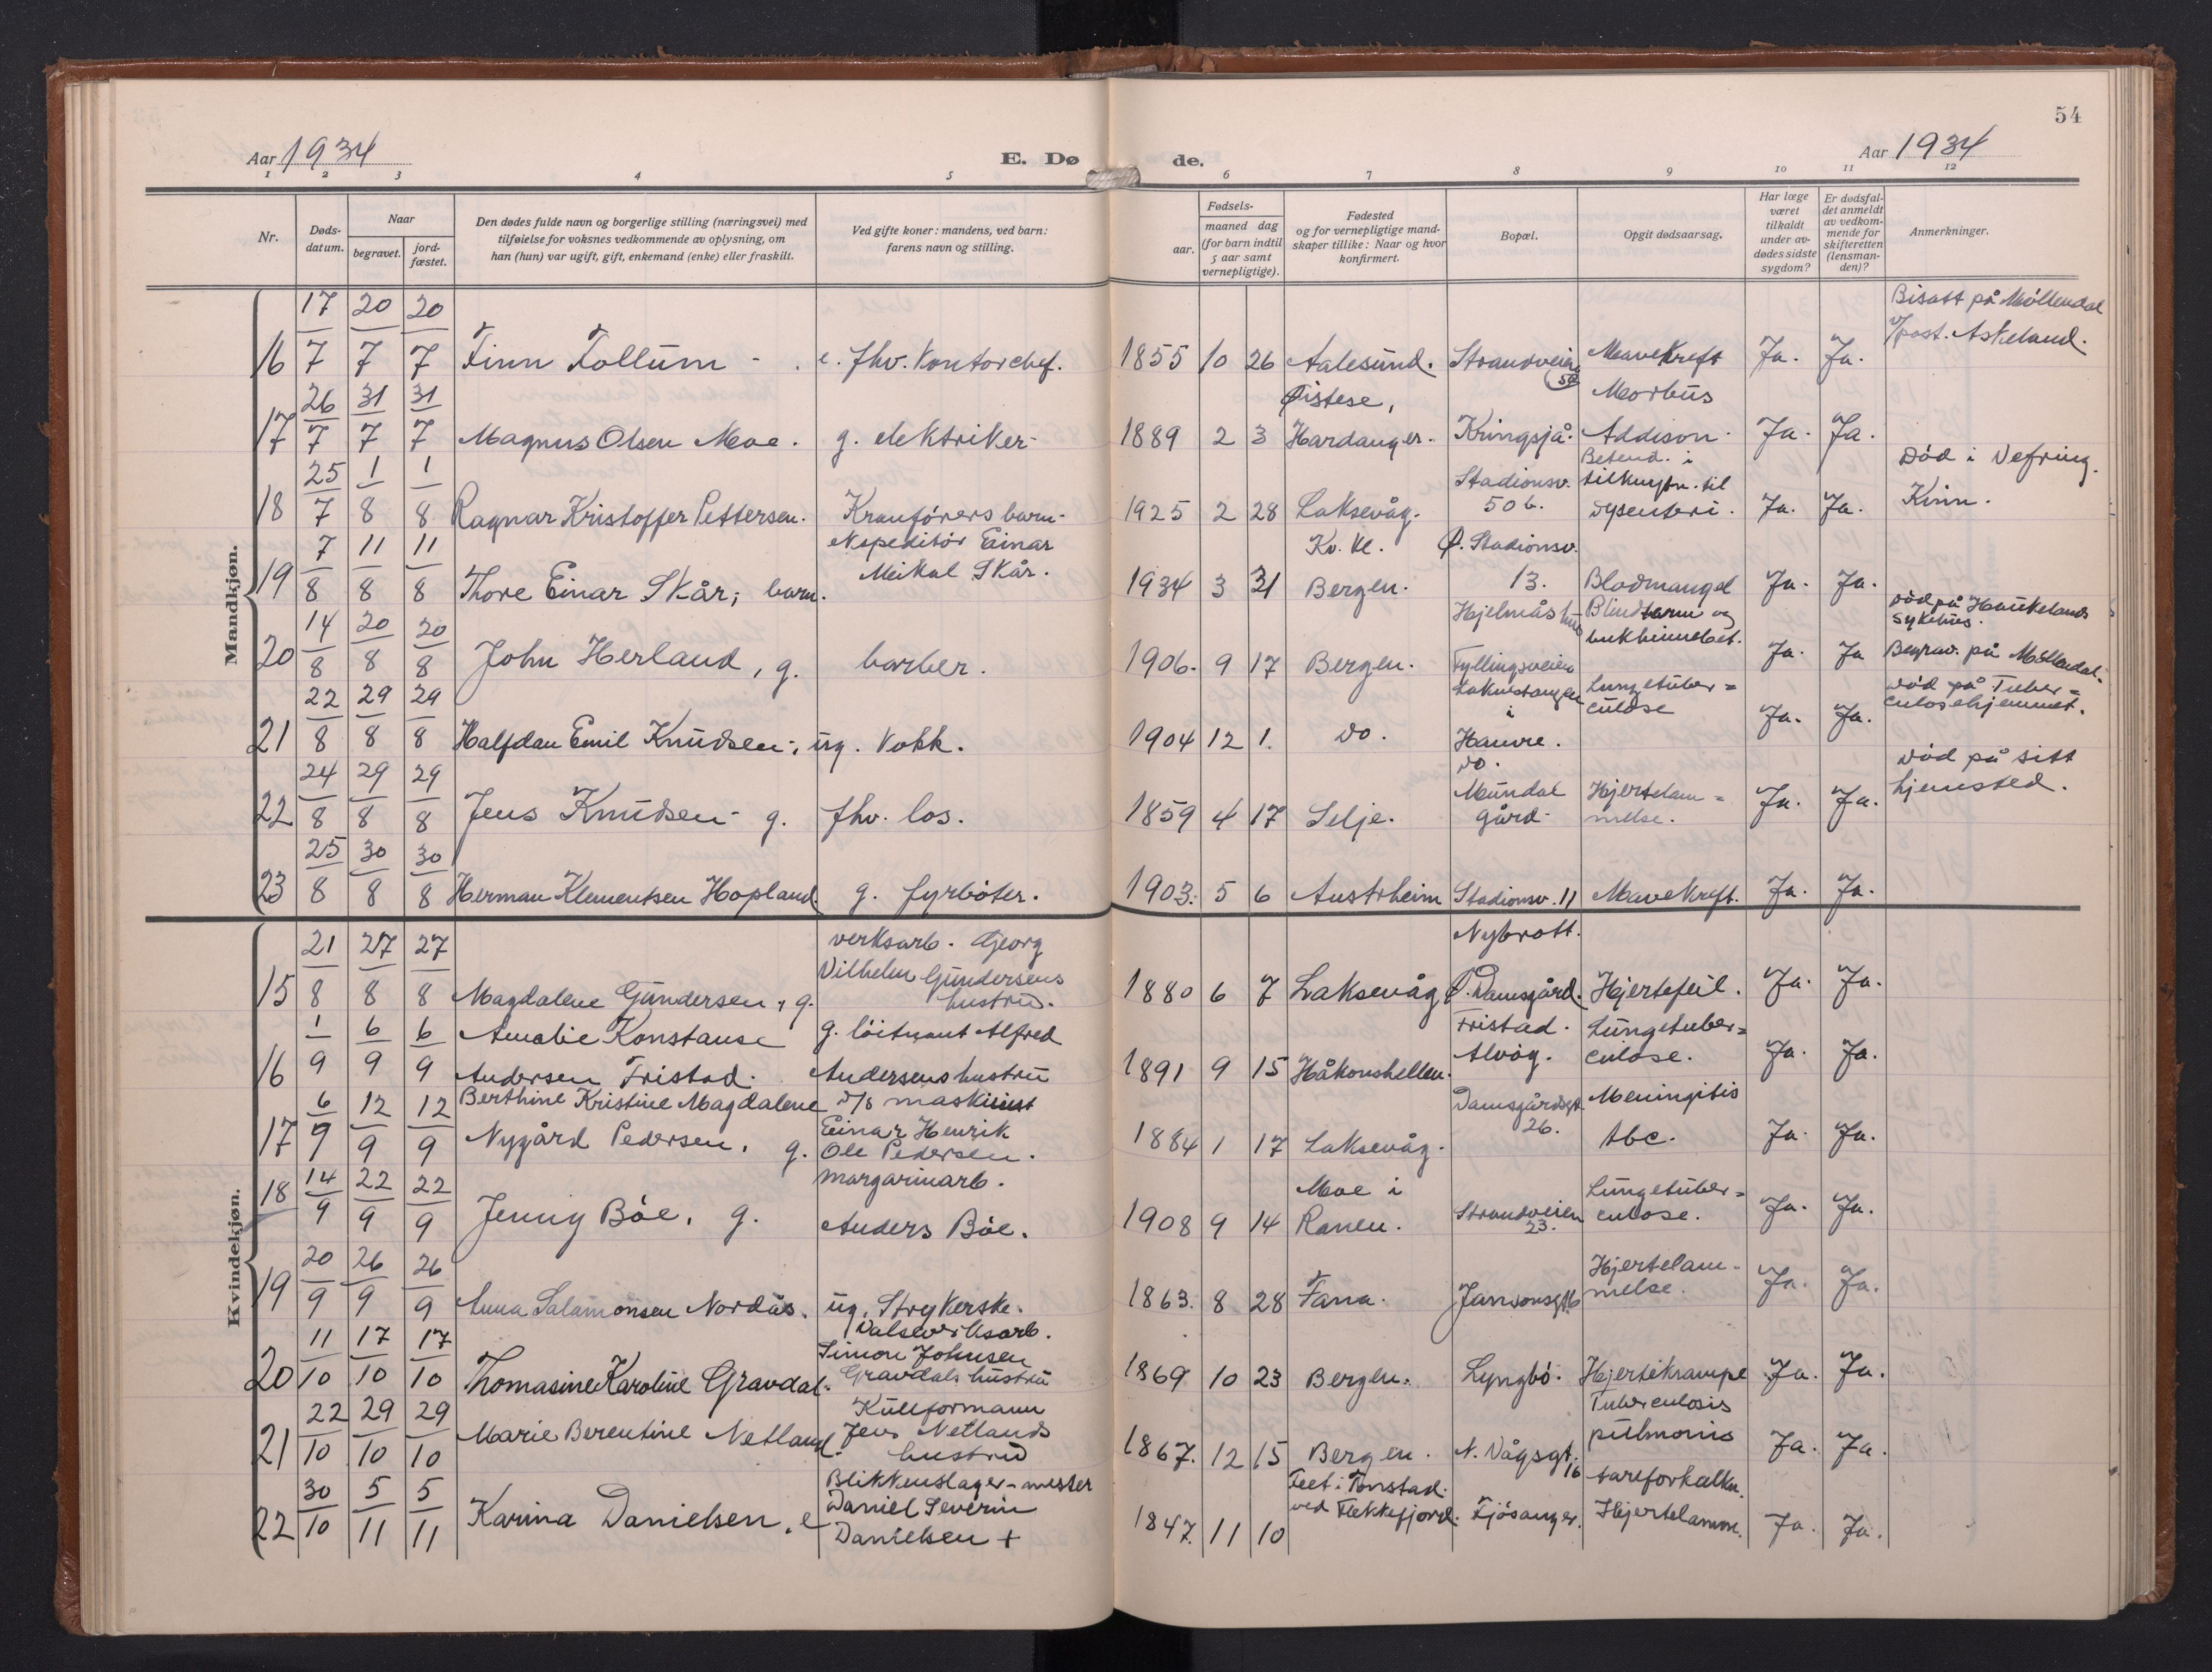 54
Aar 1934
E. Dø de.
Aar 1934
1 2 3 4 5 6 7 8 9 10 11 12
Nr.
Døds-
datum.
Naar
begravet.
jord-
fæstet.
Den dødes fulde navn og borgerlige stilling (næringsvei) med
tilføielse for voksnes vedkommende av oplysning, om
han (hun) var ugift, gift, enkemand (enke) eller fraskilt.
Ved gifte koner: mandens, ved barn:
farens navn og stilling.
Fødsels-
aar.
maaned dag
(for barn indtil
5 aar samt
vernepligtige).
Fødested
og for vernepligtige mand-
skaper tillike: Naar og hvor
konfirmert.
Bopæl.
Opgit dødsaarsag.
Har læge
været
tilkaldt
under av-
dødes sidste
sygdom?
Er dødsfal-
det anmeldt
av vedkom-
mende for
skifteretten
(lensman-
den)?
Anmerkninger.
Mandkjøn.
16 17/7 20/7 20/7 Finn Follum - e. fhv. Kontorchef. 1855 10 26 Aalesund. Strandveien 50 Mavekreft Ja. Ja. Bisatt på Møllendal
v/past. Askeland.
17 26/7 31/7 31/7 Magnus Olsen Moe. g. elektriker. 1889 2 3 Øistese,
Hardanger. Kringsjå. Morbus
Addison. Ja. Ja.
18 25/7 1/8 1/8 Ragnar Kristoffer Pettersen. Kranførers barn. 1925 2 28 Laksevåg. Stadionsv.
50 b. Betend. i
tilknytn. til
dysenteri. Ja. Ja. Død i Vefring.
Kinn.
19 7/8 11/8 11/8 Thore Einar Skår, barn. ekspeditør Einar
Meikal Skår. 1934 3 31 Kv. Kl.
Bergen. Ø. Stadionsv.
13. Blodmangel Ja. Ja.
20 14/8 20/8 20/8 John Herland, g. barber. 1906. 9 17 Bergen. Hjelmås hus
Fyllingsveien Blindtarm og
bukhinnebet. Ja. Ja Død på Haukelands
sykehus.
Begrav. på Møllendal.
21 22/8 29/8 29/8 Halfdan Emil Knudsen, ug. Kokk. 1904 12 1. Do.
i
Hamre. Lungetuber=
culose Ja. Ja. Død på Tuber=
culosehjemmet.
22 24/8 29/8 29/8 Jens Knudsen g. fhv. los. 1859 4 17 Selje. Do.
Mundal
gård. Hjertelam=
melse. Ja. Ja. Død på sitt
hjemsted.
23 25/8 30/8 30/8 Herman Klementsen Hopland. g. fyrbøter. 1903. 5 6 Austrheim Stadionsv. 11 Mavekreft. Ja. Ja.
Kvindekjøn.
15 21/8 27/8 27/8 Magdalene Gundersen, g. verksarb. Georg
Vilhelm Gundersens
hustru. 1880 6 7 Laksevåg Nybrott.
Ø. Damsgård. Hjertefeil. Ja. Ja.
16 1/9 6/9 6/9 Amalie Konstanse
Andersen Fristad. g. løitnant Alfred
Andersens hustru 1891 9 15 Håkonshellen. Fristad.
Alvøg. Lungetuber=
culose. Ja. Ja.
17 6/9 12/9 12/9 Berthine Kristine Magdalene
Nygård Pedersen. g. D/s maskinist
Einar Henrik
Ole Pedersen. 1884 1 17 Laksevåg. Damsgårdsgt
26. Meningitis
tbc. Ja. Ja.
18 14/9 22/9 22/9 Jenny Bøe, g. margarinarb.
Anders Bøe. 1908 9 14 Moe i
Ranen. Strandveien
23. Lungetuber=
culose. Ja. Ja.
19 20/9 26/9 26/9 Anna Salamonsen Nordås. ug. Strykerske. 1863. 8 28 Fana. Hjertelam-
melse. Ja. Ja.
20 11/10 17/10 17/10 Thomasine Karoline Gravdal. Valseverksarb.
Simon Johnsen
Gravdals hustru 1869 10 23 Bergen. Lyngbø. Hjertekrampe Ja. Ja.
21 22/10 29/10 29/10 Marie Berentine Netland. Kullformann
Jens Netlands
hustru 1867. 12 15 Bergen. N. Vågsgt. 16 Tuberculosis
pulmonis Ja. Ja.
22 30/10 5/11 5/11 Karina Danielsen, e Blikkenslager-mester
Daniel Severin
Danielsen + 1847. 11 10 Feet i Tonstad
ved Flekkefjord. Fjøsanger. Åreforkalkn.
Hjertelamm. Ja. Ja.